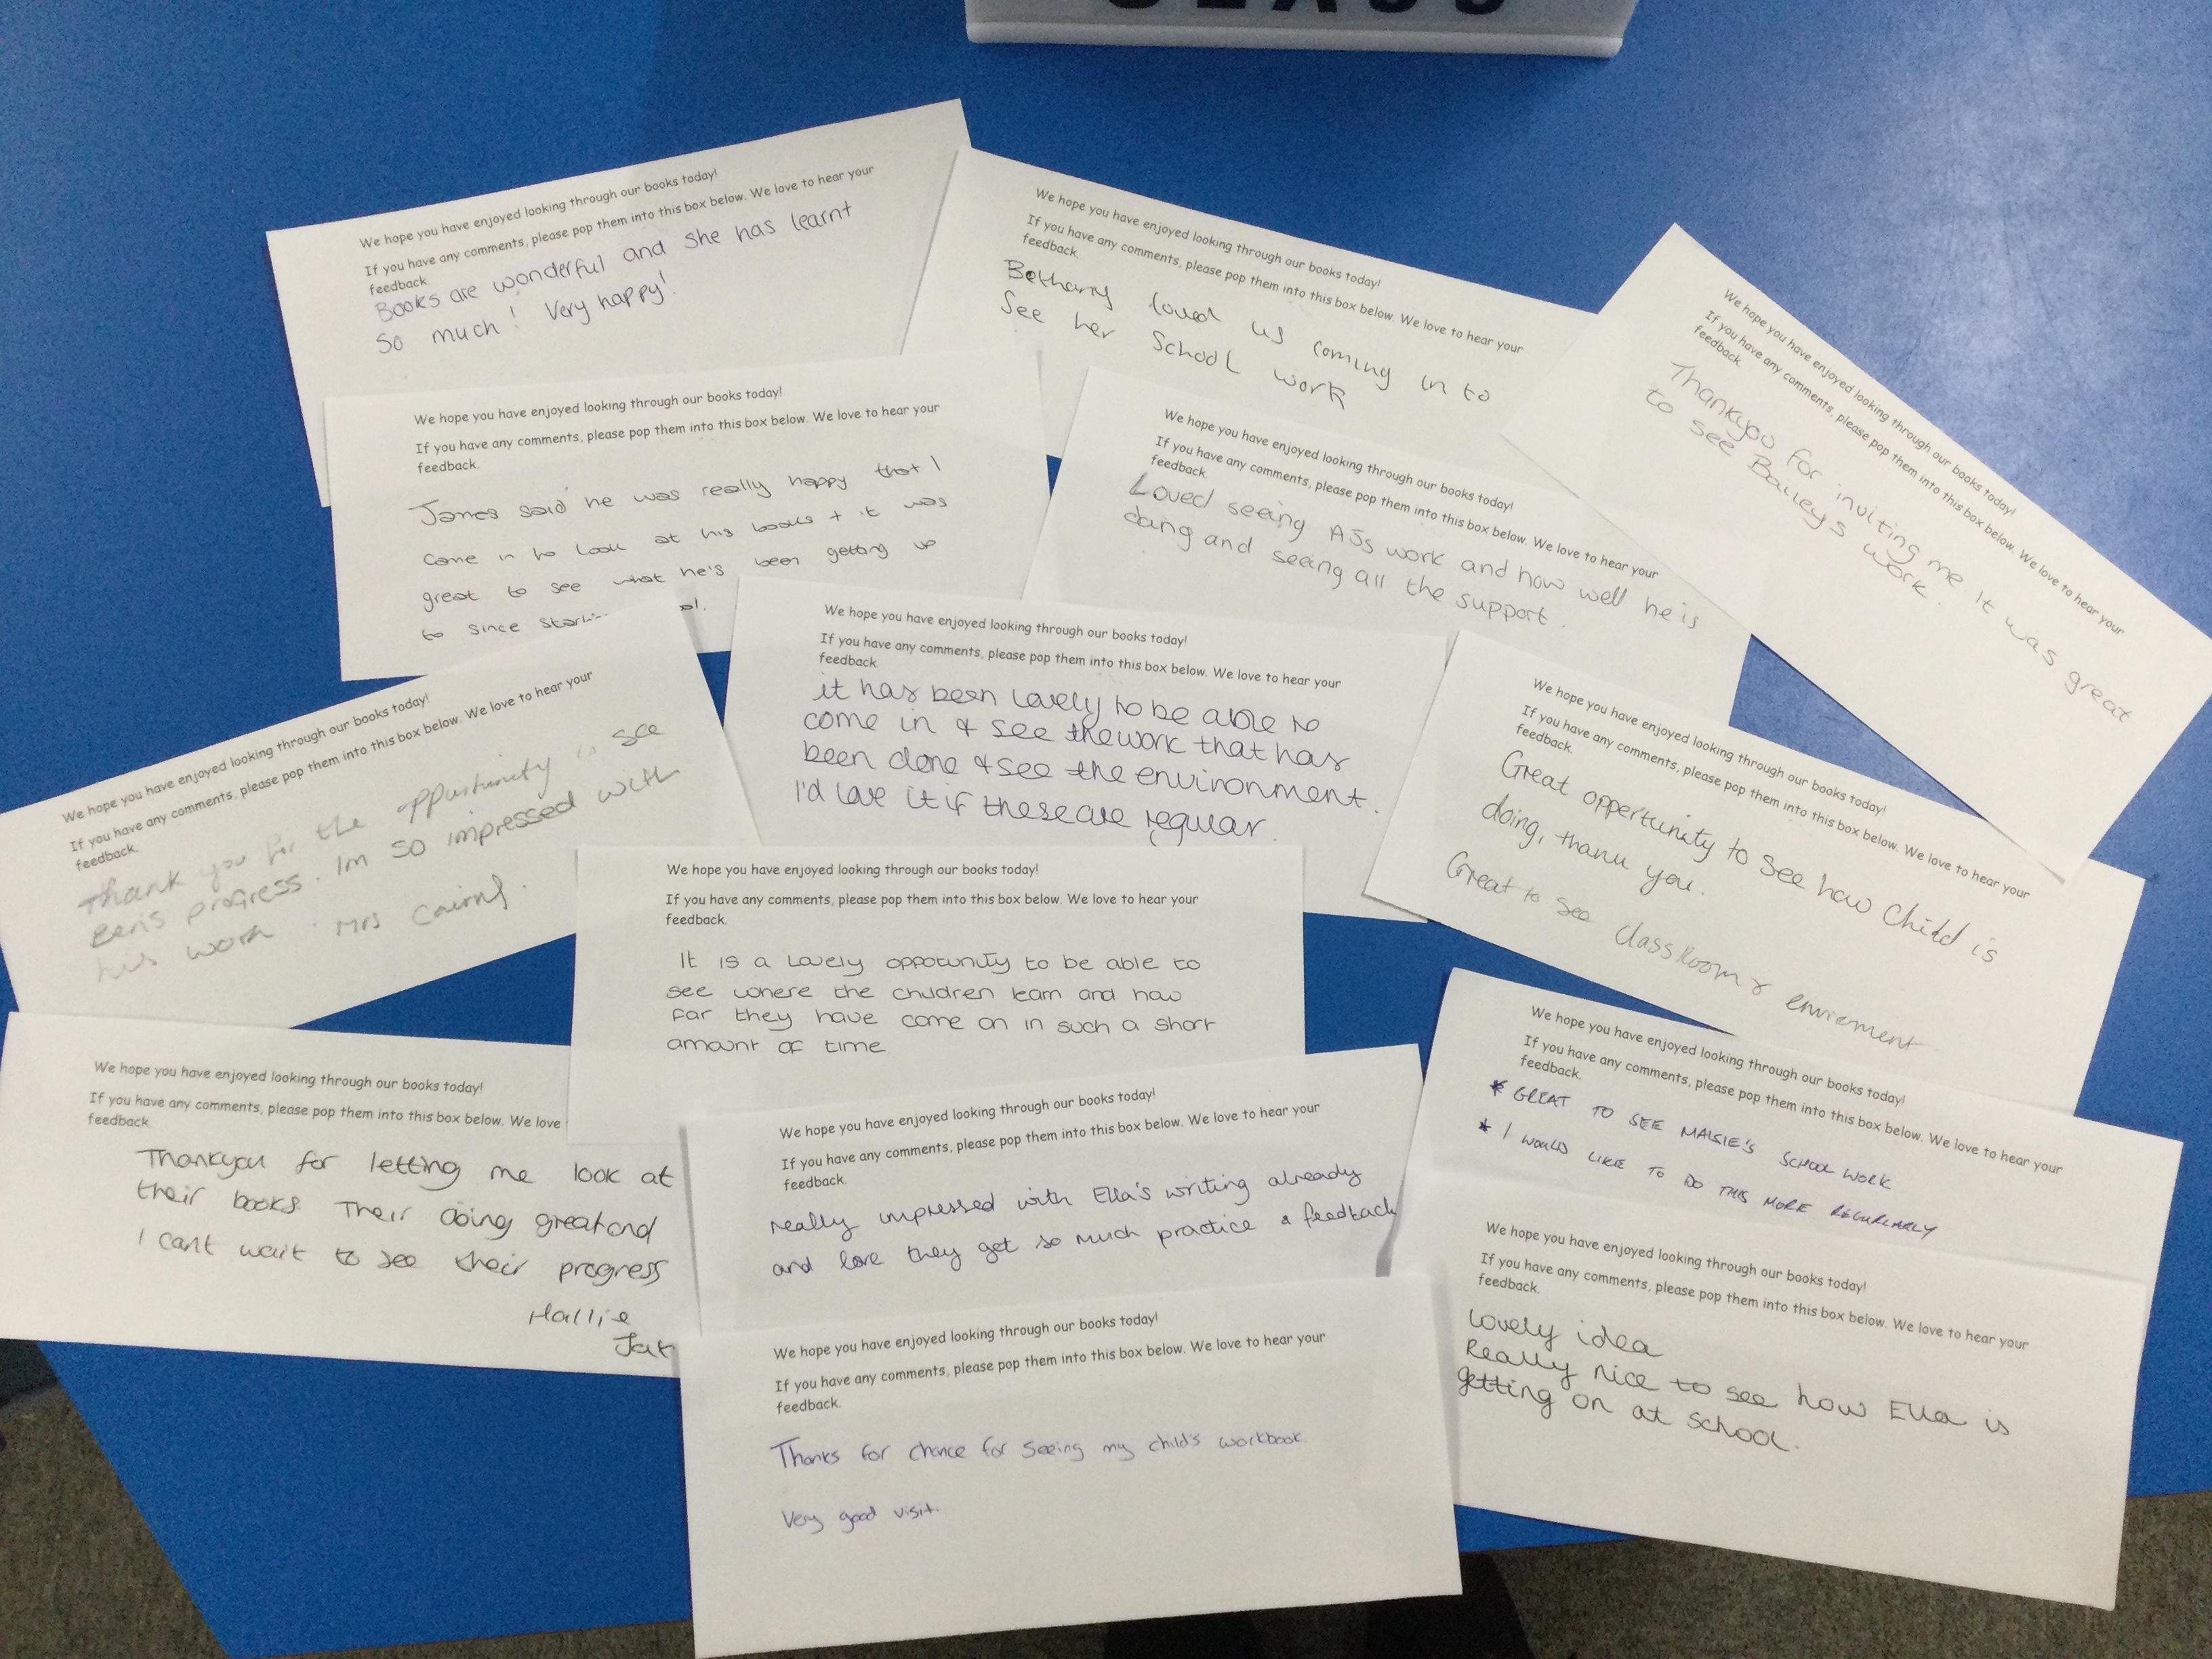 CLASS
We hope you have enjoyed looking through our books today!
If you have any comments, please pop them into this box below. We love to hear your
feedback.
Books are wonderful and she has learnt
so much! Very happy!
We hope you have enjoyed looking through our books today!
If you have any comments, please pop them into this box below. We love to hear your
feedback.
Bethany loved us coming in to
See her School work
We hope you have enjoyed looking through our books today!
If you have any comments, please pop them into this box below. We love to hear your
feedback.
Thankyou for inviting me. It was great
to see Bailey's work.
We hope you have enjoyed looking through our books today!
If you have any comments, please pop them into this box below. We love to hear your
feedback.
James said he was really happy that I
came in to look at his books + it was
great to see what he's been getting up
to since
We hope you have enjoyed looking through our books today!
If you have any comments, please pop them into this box below. We love to hear your
feedback.
Loved seeing AJs work and how well he is
doing and seeing all the support.
We hope you have enjoyed looking through our books today!
If you have any comments, please pop them into this box below. We love to hear your
feedback.
Thank you for the opportunity to see
Ben's progress. Im so impressed with
his work. Mrs Cairns.
We hope you have enjoyed looking through our books today!
If you have any comments, please pop them into this box below. We love to hear your
feedback.
it has been lovely to be able to
come in & see the work that has
been done & see the environment.
I'd love it if these are regular.
We hope you have enjoyed looking through our books today!
If you have any comments, please pop them into this box below. We love to hear your
feedback.
Great oppertunity to see how child is
doing, thank you.
Great to see classroom & enviement
We hope you have enjoyed looking through our books today!
If you have any comments, please pop them into this box below. We love to hear your
feedback.
It is a lovely oppotunity to be able to
see where the children learn and how
far they have come on in such a short
amount of time
We hope you have enjoyed looking through our books today!
If you have any comments, please pop them into this box below. We love
feedback.
Thankyou for letting me look at
their books. Their doing great and
I cant wait to see their progress
Hallie
We hope you have enjoyed looking through our books today!
If you have any comments, please pop them into this box below. We love to hear your
feedback.
really impressed with Ella's writing already
and love they get so much practice & feedback
We hope you have enjoyed looking through our books today!
If you have any comments, please pop them into this box below. We love to hear your
feedback.
* GREAT TO SEE MAISIE'S SCHOOL WORK
* I WOULD LIKE TO DO THIS MORE REGURLARLY
We hope you have enjoyed looking through our books today!
If you have any comments, please pop them into this box below. We love to hear your
feedback.
Thanks for chance for seeing my child's workbook.
Very good visit.
We hope you have enjoyed looking through our books today!
If you have any comments, please pop them into this box below. We love to hear your
feedback.
lovely idea
Really nice to see how Ella is
getting on at school.